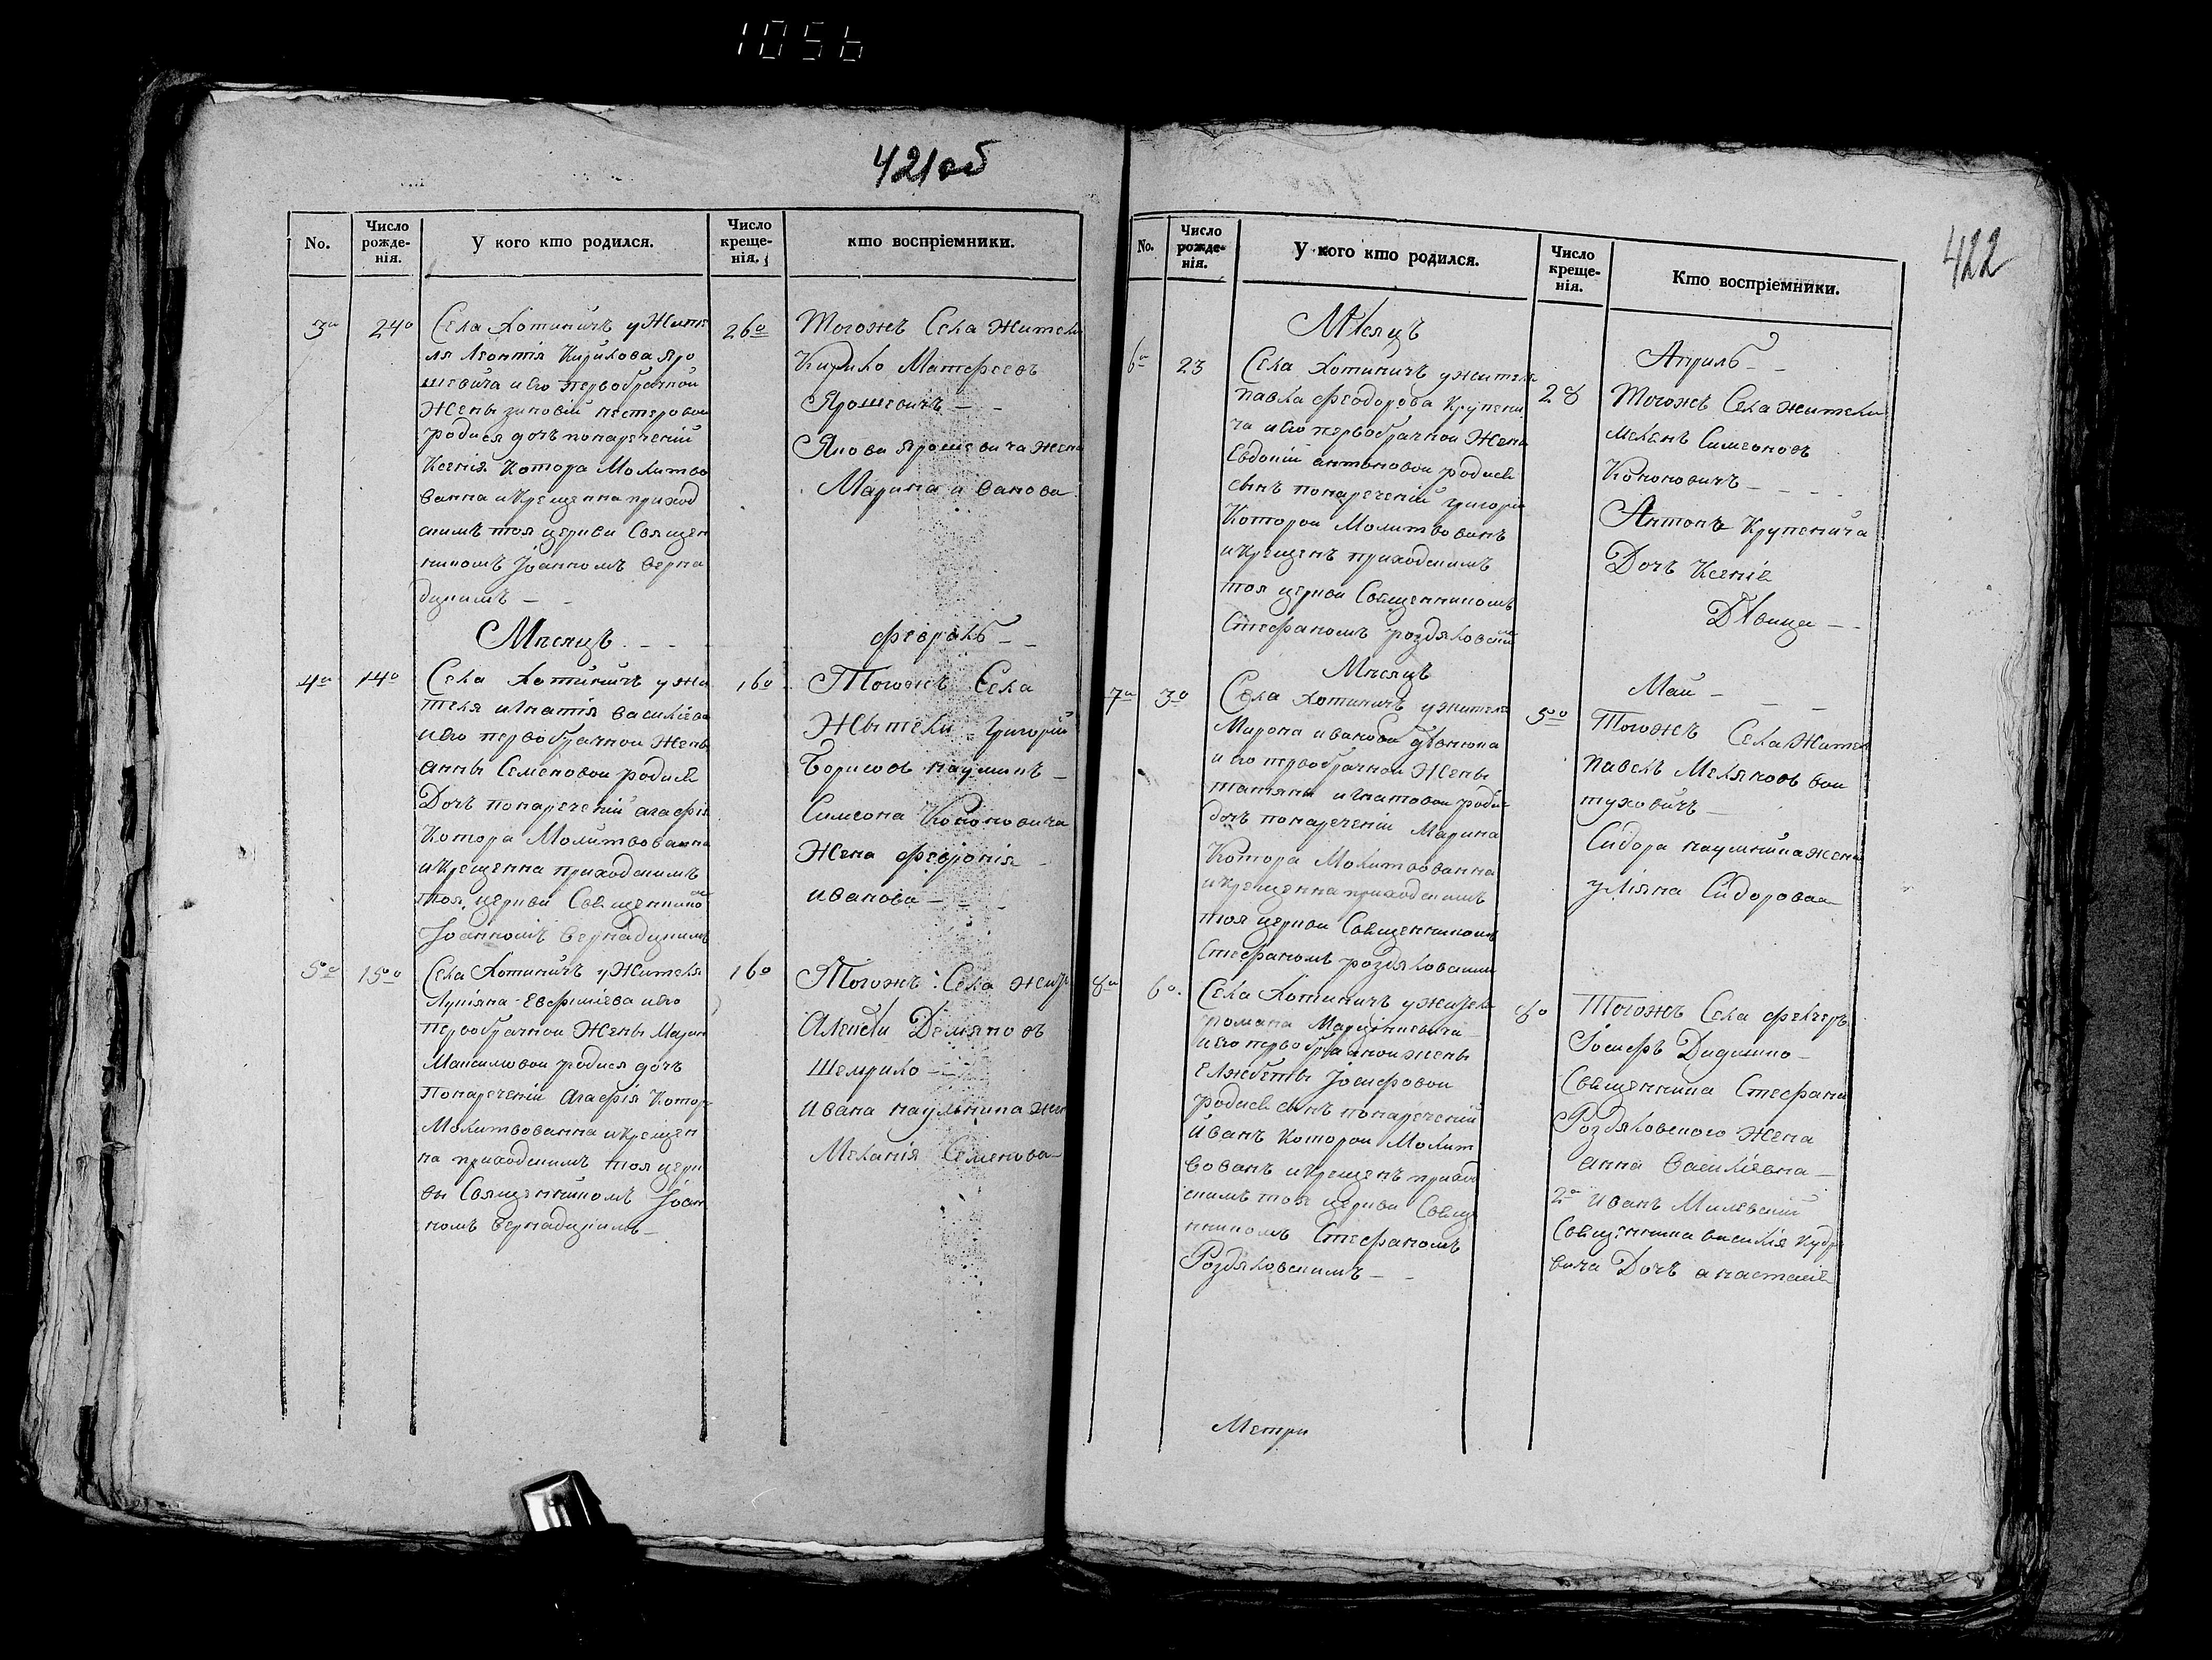 1056
421об
No.
Число рожде-нія.
У кого кто родился.
Число креще-нія.
кто воспріемники.
3а
24о
Села Хотиничъ у Жите
ля Леонтія Кирикова Яро
шевича и его первобрачной
Жены зиновій нестеровой
родися дочъ понареченій
Ксенія Котора Молитво
ванна и Крещенна приход
скимъ тоя церкви Священ
никомъ Іоанномъ Берна
дскимъ — -
26о
Тогожъ Села Жители
Кирило Матфеевъ
Ярошевичъ — -
Якова Ярошевича Жена
Марина иванова
Мѣсяцъ . - -
февралъ —
4а
14о
Села Хотиничъ у жи
теля игнатія василіева
и его первобрачной Жены
анны Семеновой родися
Дочъ понареченій агафія
Котора Молитвованна
и Крещенна приходскимъ
тоя церкви Священнико
Іоанномъ Бернадскимъ
16о
Тогожъ Села
Жытели Григорій
Борисовъ наумикъ —
Симеона Кононовича
Жена февронія -
иванова — - -
5а
15о
Села Хотиничъ у Жителя
Лукіяна Евфиміева и его
первобрачной Жены Марин
Максимовой родися дочъ
Понареченій агафія Котор
Молитвованна и Крещен
на приходскимъ тоя церк
ви Священникомъ Іоан
номъ Бернадскимъ —
16о
Тогожъ Села жит
Алексѣи Демяновъ
Шемрило —
Ивана наумчика жен
Меланія Семенова —
422
No.
Число рожде-нія.
У кого кто родился.
Число креще-нія.
Кто воспріемники.
Мѣсяцъ
Априль - -
6а
23
Села Хотиничъ у жителя
павла феодорова Крупени
ча и его первобрачной Жены
Евдокіи антоновой родися
сынъ понареченій григорій
Которой Молитвованъ
и Крещенъ приходскимъ
тоя церкви Священникомъ
Стефаномъ роздяловскимъ
28
Тогожъ Села жители
меленъ Симеоновъ
Кононовичъ — - -
Антонъ Крупенича
Дочъ Ксенія
Дѣвица — -
Мѣсяцъ
Май —
7а
3о
Села Хотиничъ у жителя
Мирона иванова
и его первобрачной Жены
татяни игнатовой роди
дочъ понареченій Марина
Котора Молитвованна
и Крещенна приходскимъ
тоя церкви Священникомъ
Стефаномъ роздяловскимъ
5о
Тогожъ Села Жител
павелъ Меляновъ вой
туховичъ —
Сидора наумчика жена
уліяна Сидорова
8а
6о.
Села Хотиничъ у жителя
романа Марцинкевича —
и его первобрачной жены
Елжбеты Іосифовой
родися сынъ понареченій
иванъ Которой Молит
вованъ и Крещенъ приход
скимъ тоя церкви Свящ
нникомъ Стефаномъ
Роздяловскимъ — -
8о
Тогожъ Села фелчеръ
Іосифъ Дидушко —
Священника Стефана
Роздяловского Жена
Анна василіевна —
2а Иванъ Милевскій
Священника василія Кудр
вича Дочъ анастасія
Метри